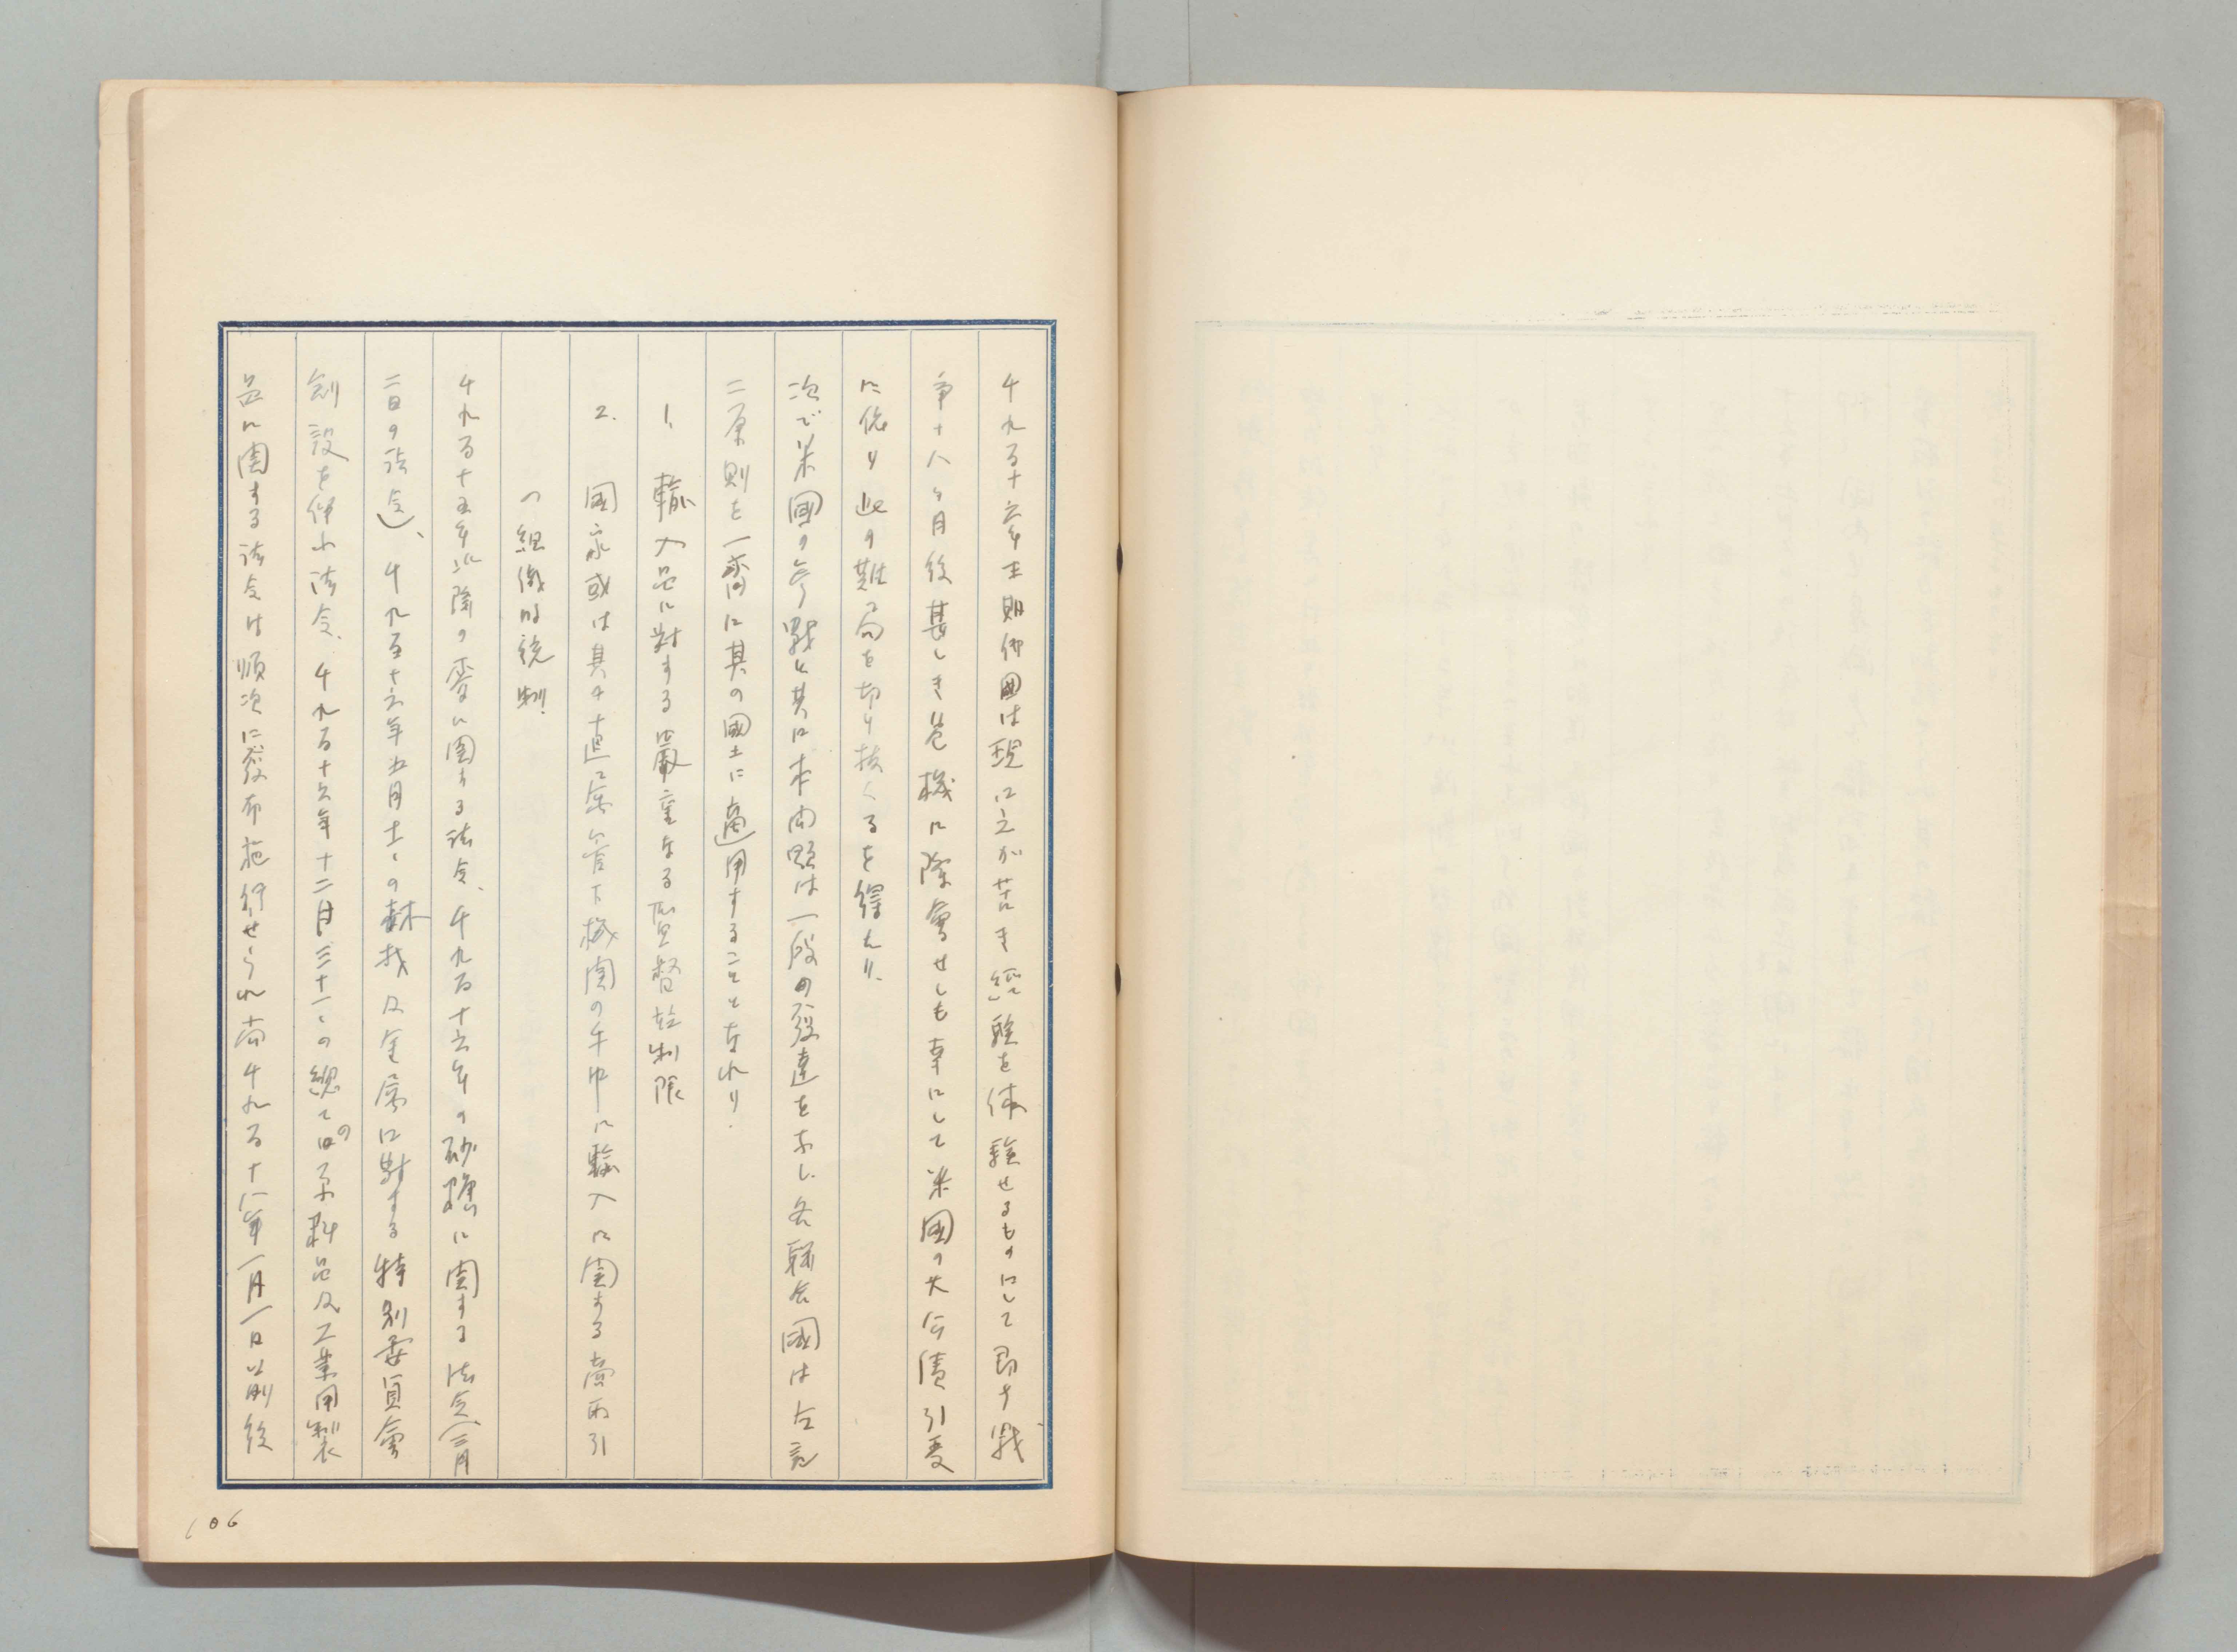 千九百十六年末期佛國は現に之が苦き経驗を体驗せるものにして即ち戰
爭十八ヶ月後甚しき危機に際會せしも幸にして米國の大公債引受
に依り此の難局を切り抜くるを得たり、
次で米國の参戰と共に本問題は一段の發達をなし各聯合國は左記
二原則を一齊に其の國土に適用することとなれり.
1、輸入品に對する嚴重なる監督竝制限
2. 國家或は其の直属管下機関の手中に輸入に関する商取引
の組織的統制.
千九百十五年以降の麥に関する法令、千九百十六年の砂糖に関する法令(三月
二日の法令)、千九百十六年五月十一、の森林及金属に對する特別委員會
創設を伴ふ法令、千九百十六年十二月三十一、の総ての原料品及工業用製
品に関する法令は順次に發布施行せられ尚千九百十八年一月一日以前後
106